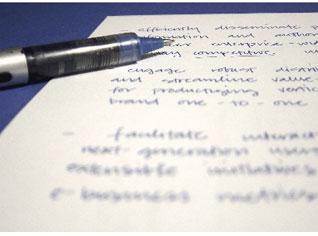 efficiently disseminate
and autho
enterprise-wid
competitive
engage robust
and streamline value
for productizing vertic
brand one-to-one
- facilitate interact
next-generation users
extensible initiatives
e-business metrics